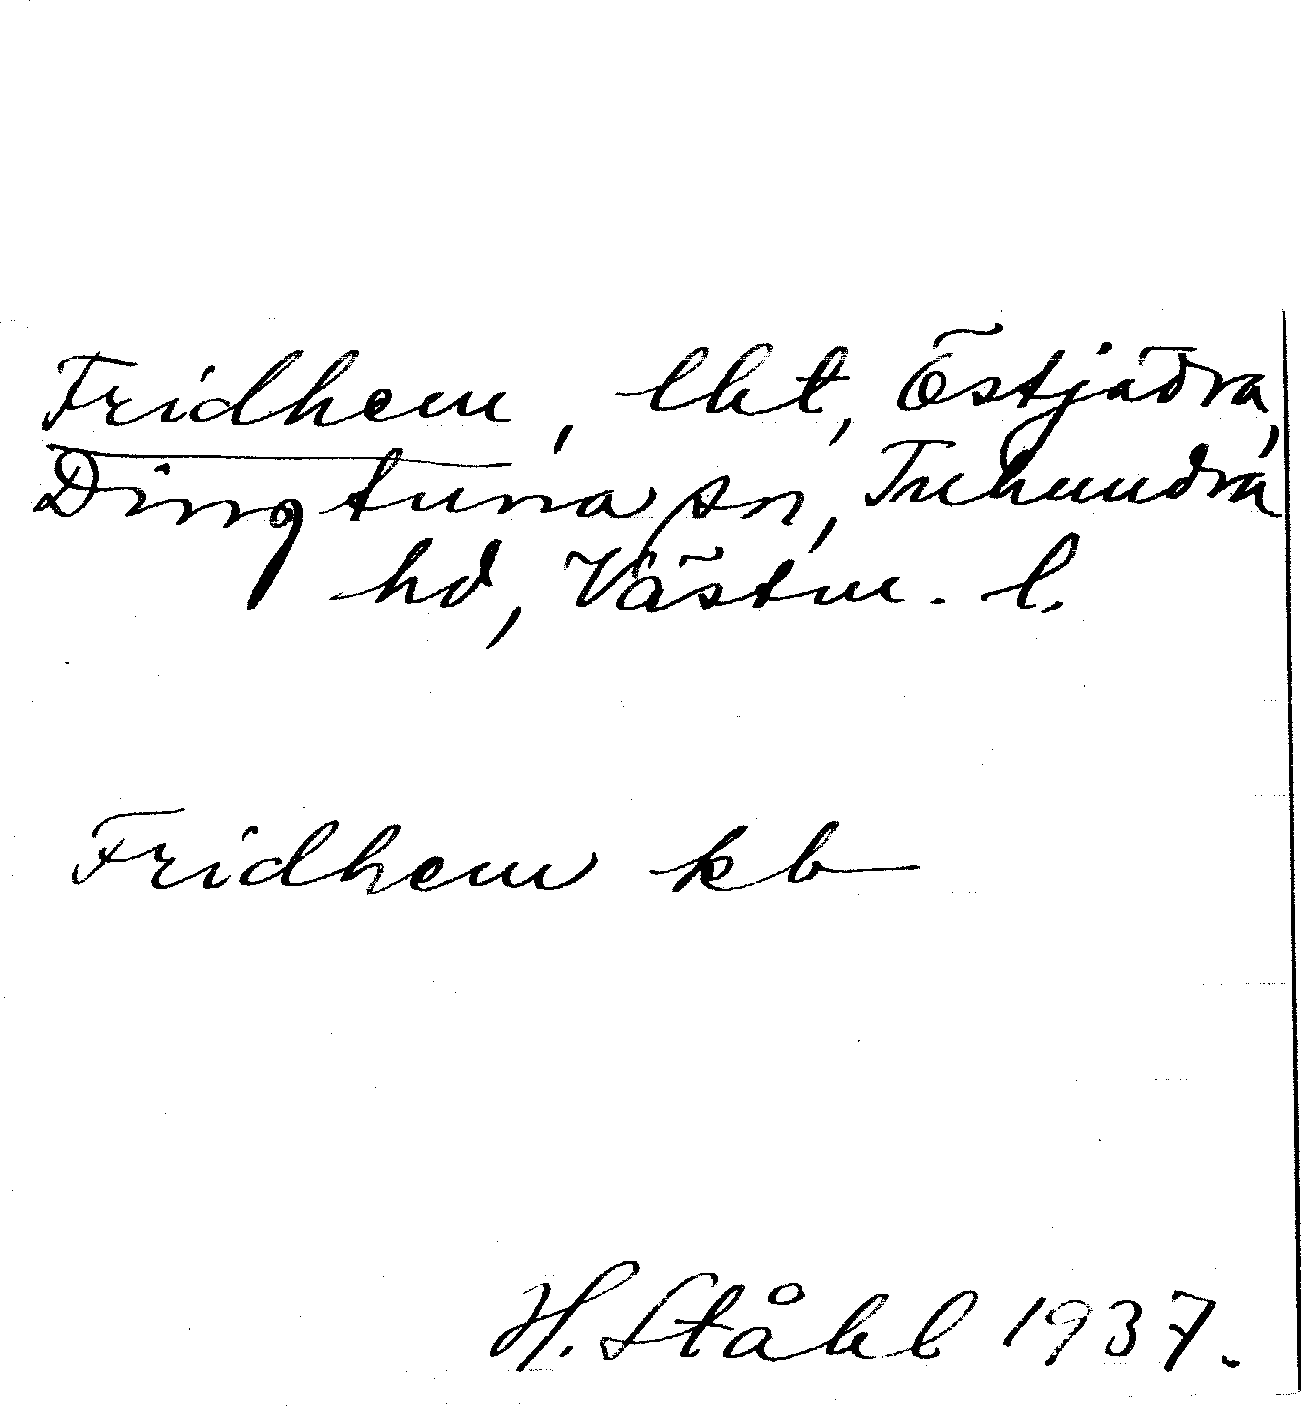 Fridhem, lht, Östjädra,
Dingtuna sn, Tuhundra
hd, Västm. l.
Fridhem kb
H. Ståhl 1937.